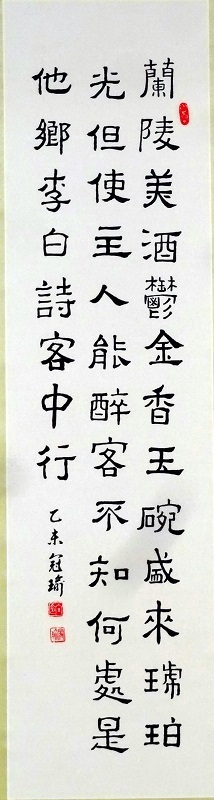 蘭陵美酒鬱金香玉碗盛來琥珀
光但使主人能醉客不知何處是
他鄉李白詩客中行
乙未冠瑜